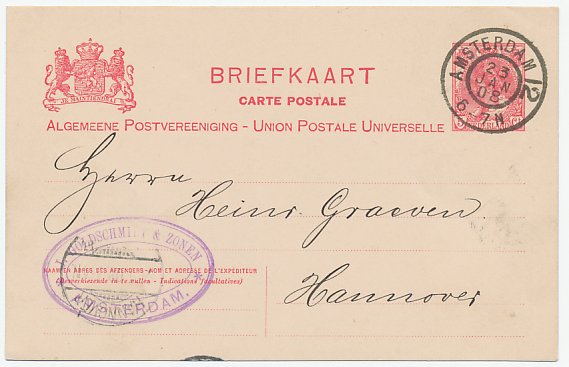 JE MAINTIENDRAI
BRIEFKAART
CARTE POSTALE
ALGEMEENE POSTVEREENIGING - UNION POSTALE UNIVERSELLE
AMSTERDAM 12
23
JAN
08
6 7N
NEDERLAND
Herrn
Heinr. Graeven
Hannover
GOLDSCHMIDT & ZONEN
NAAM EN ADRES DES AFZENDERS - NOM ET ADRESSE DE L'EXPÉDITEUR
(Desverkiezende in te vullen - Indications facultatives)
AMSTERDAM.